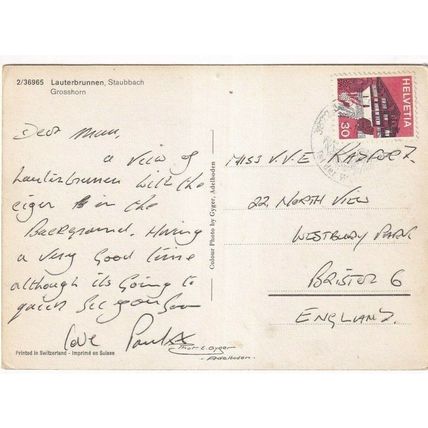 2/36965 Lauterbrunnen, Staubbach
Grosshorn
Dear Mum,
a view of
Lauterbrunnen with the
eiger in the
Background. Having
a very good time
although its going to
quick See you Soon
love Paul xx
Printed in Switzerland - Imprimé en Suisse
Colour Photo by Gyger, Adelboden
Phot. E. Gyger
Adelboden
HELVETIA
30
MISS V.V.E
22 NORTH VIEW
WESTBURY PARK
BRISTOL 6
ENGLAND.